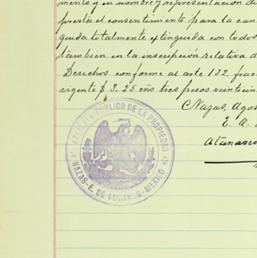 mente y en nombre y representacion de
presta el consentimiento para la can
quida totalmente extinguida con todos
tambien en la inscripción relativa d
Derechos conforme al arto 132 frac
urgente $3.25 cvs tres pesos veintici
Nazas, Agos
E. A.
Atanasio
REGISTRO PUBLICO DE LA PROPIEDAD
NAZAS-E. DE DURANGO-MEXICO